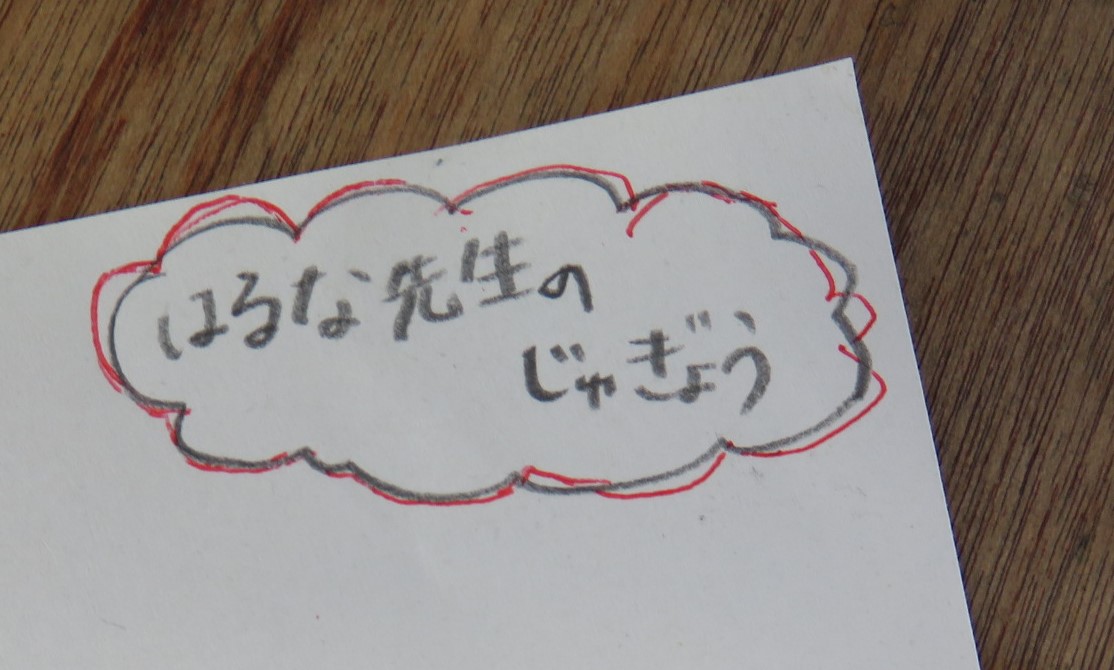 はるな先生の
じゃぎょう